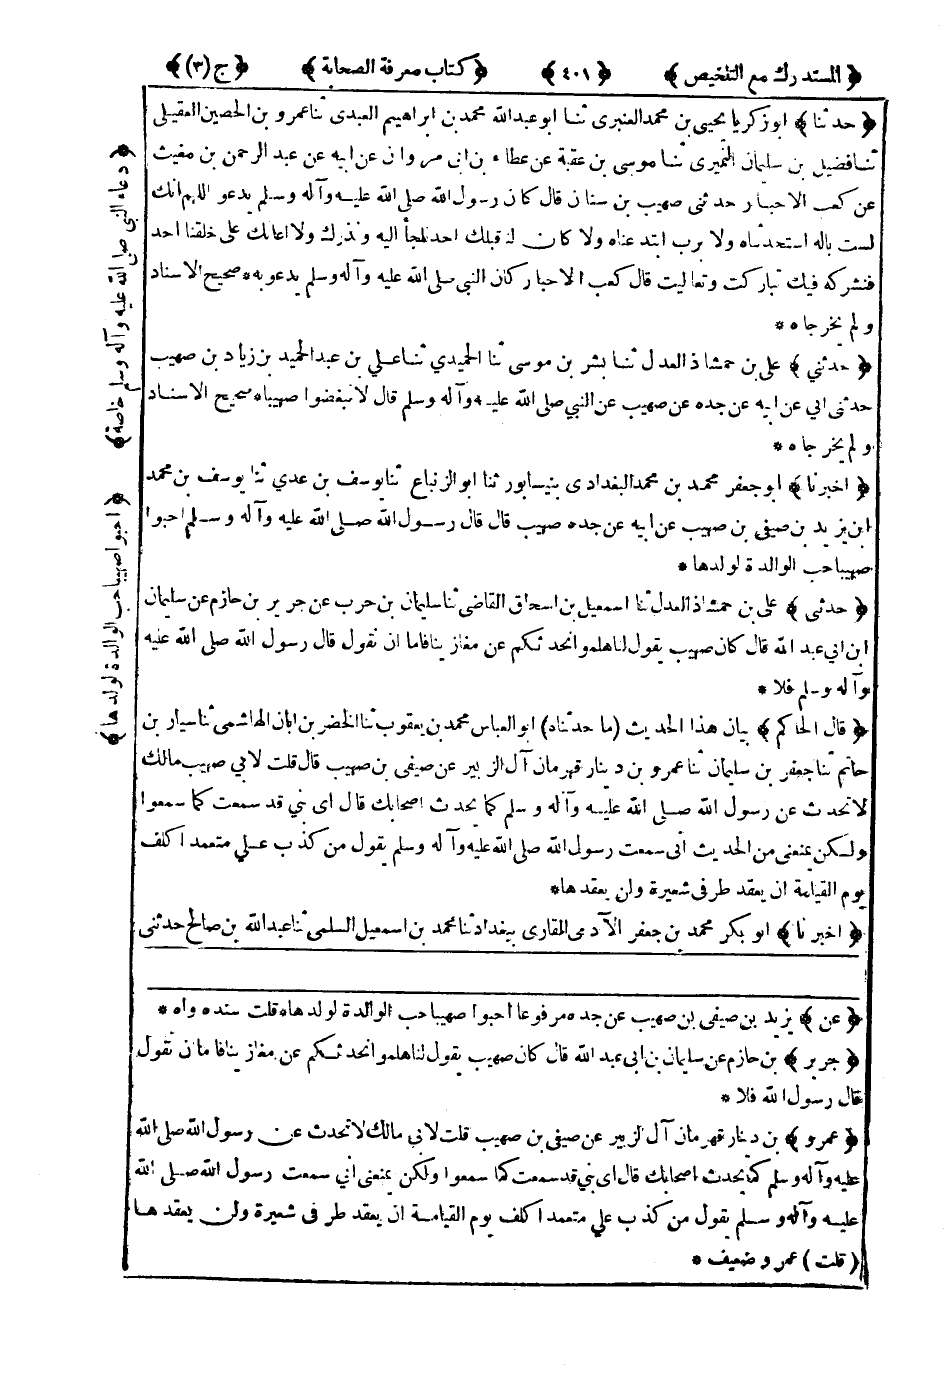 ﴿ المستدرك مع التلخيص ﴾ ﴿ ٤٠١ ﴾ ﴿ كتاب معرفة الصحابة ﴾ ﴿ ج (٣) ﴾
﴿ حدثنا ﴾ ابوزكريا يحيى بن محمد العنبرى ثنا ابوعبدالله محمد بن ابراهيم العبدى ثنا عمرو بن الحصين العقيلى
ثنا فضيل بن سليمان النميرى ثنا موسى بن عقبة عن عطاء بن ابى مروان عن ابيه عن عبد الرحمن بن مغيث
عن كعب الاحبار حدثنى صهيب بن سنان قال كان رسول الله صلى الله عليه وآله وسلم يدعو اللهم انك
لست باله استحدثناه ولا برب ابتدعناه ولا كان لنا قبلك احد نلجأ اليه ونذرك ولا اعانك على خلقنا احد
فنشركه فيك تباركت وتعاليت قال كعب الاحبار كان النبى صلى الله عليه وآله وسلم يدعو به * صحيح الاسناد
ولم يخرجاه *
﴿ حدثني ﴾ على بن حمشاذ العدل ثنا بشر بن موسى ثنا الحميدي ثنا علي بن عبدالحميد بن زياد بن صهيب
حدثنى ابي عن ابيه عن جده عن صهيب عن النبي صلى الله عليه وآله وسلم قال لا تبغضوا صهيبا * صحيح الاسناد
ولم يخرجاه *
﴿ اخبرنا ﴾ ابوجعفر محمد بن محمد البغدادى بنيسابور ثنا ابوالزنباع ثنا يوسف بن عدي ثنا يوسف بن محمد
ابن يزيد بن صيفى بن صهيب عن ابيه عن جده صهيب قال قال رسول الله صلى الله عليه وآله وسلم احبوا
صهيبا حب الوالدة لولدها *
﴿ حدثى ﴾ على بن حمشاذ العدل ثنا اسمعيل بن اسحاق القاضى ثنا سليمان بن حرب عن جرير بن حازم عن سليمان
ابن ابى عبد الله قال كان صهيب يقول لنا هلموا نحدثكم عن مغازينا فاما ان نقول قال رسول الله صلى الله عليه
وآله وسلم فلا *
﴿ قال الحاكم ﴾ بيان هذا الحديث (ما حدثناه) ابوالعباس محمد بن يعقوب ثنا الخضر بن ابان الهاشمى ثنا سيار بن
حاتم ثنا جعفر بن سليمان ثنا عمرو بن دينار قهرمان آل الزبير عن صيفى بن صهيب قال قلت لابي صهيب مالك
لا تحدث عن رسول الله صلى الله عليه وآله وسلم كما يحدث اصحابك قال اى بني قد سمعت كما سمعوا
ولكن يمنعنى من الحديث انى سمعت رسول الله صلى الله عليه وآله وسلم يقول من كذب علي متعمدا كلف
يوم القيامة ان يعقد طرفى شعيرة ولن يعقدها *
﴿ اخبرنا ﴾ ابو بكر محمد بن جعفر الآدمى المقارى ببغداد ثنا محمد بن اسمعيل السلمى ثنا عبدالله بن صالح حدثنى
﴿ دعاء النبى صلى الله عليه وآله وسلم خاصة ﴾
﴿ احبوا صهيبا حب الوالدة لولدها ﴾
﴿ عن ﴾ يزيد بن صيفى بن صهيب عن جده مرفوعا احبوا صهيبا حب الوالدة لولدها * قلت سنده واه *
﴿ جرير ﴾ بن حازم عن سليمان بن ابى عبد الله قال كان صهيب يقول لنا هلموا نحدثكم عن مغازينا فاما ان نقول
قال رسول الله فلا *
﴿ عمرو ﴾ بن دينار قهرمان آل الزبير عن صيفى بن صهيب قلت لابي مالك لا تحدث عن رسول الله صلى الله
عليه وآله وسلم كما يحدث اصحابك قال اى بني قد سمعت كما سمعوا ولكن يمنعنى اني سمعت رسول الله صلى الله
عليه وآله وسلم يقول من كذب علي متعمدا كلف يوم القيامة ان يعقد طرفى شعيرة ولن يعقدها
( قلت ) عمرو ضعيف *